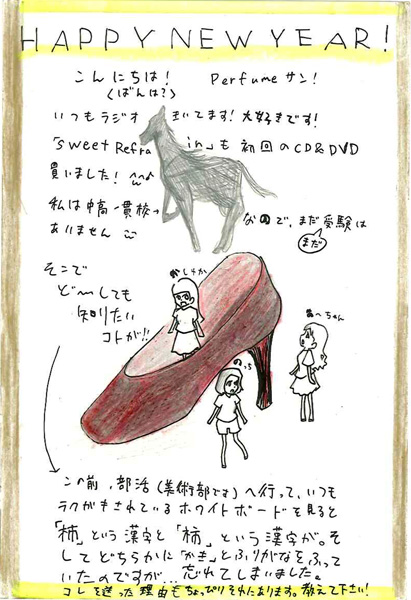 HAPPY NEW YEAR!
こんにちは! Perfumeサン!
(ばんは?)
いつもラジオ きいてます! 大好きです!
「sweet Refrain」も初回のCD&DVD
買いました!
私は中高一貫校→なので、まだ受験は
まだ
ありません
そこで
ど〜しても
知りたい
コトが!!
かしゆか
あ〜ちゃん
のっち
この前、部活(美術部です)へ行って、いつも
ラクがきされているホワイトボードを見ると
「柿」という漢字と「杮」という漢字が。そ
してどちらかに「かき」とふりがなをふって
いたのですが…忘れてしまいました。
コレを送った理由もちょっぴりそれにあります。教えて下さい!